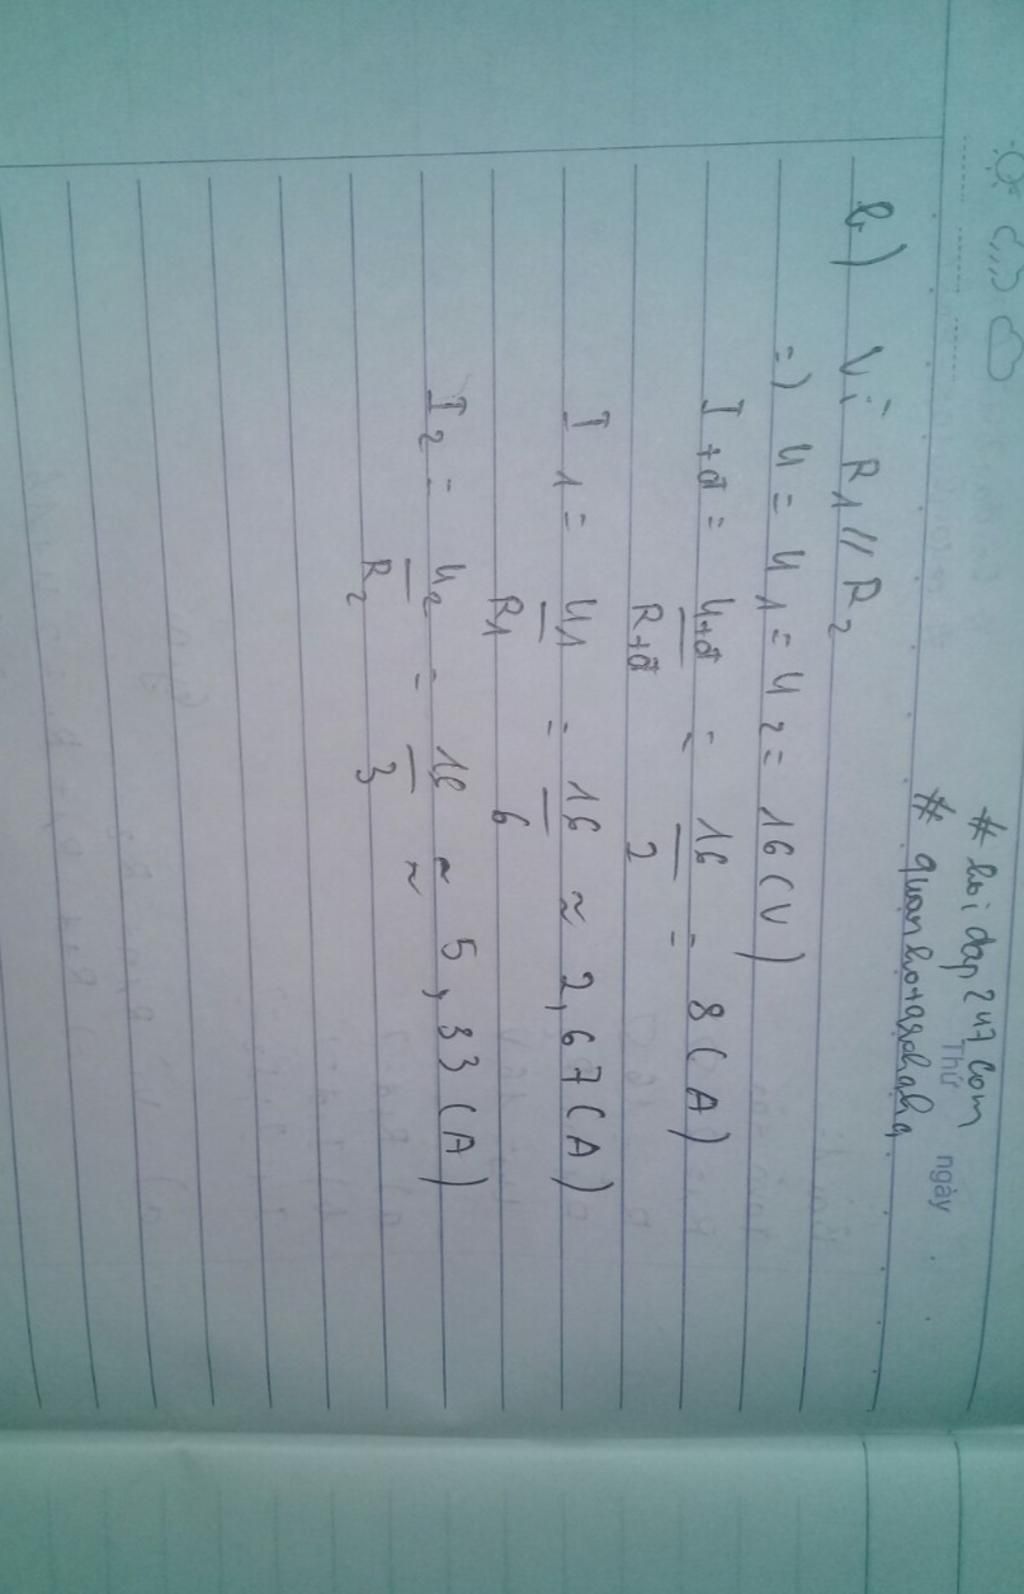 # hoidap247.com
Thứ ngày
b) Vì R1 // R2
=) U = U1 = U2 = 16 (V)
I+đ = U+đ / R+đ = 16 / 2 = 8 (A)
I1 = U1 / R1 = 16 / 6 ≈ 2,67 (A)
I2 = U2 / R2 = 16 / 3 ≈ ≈ 5,33 (A)